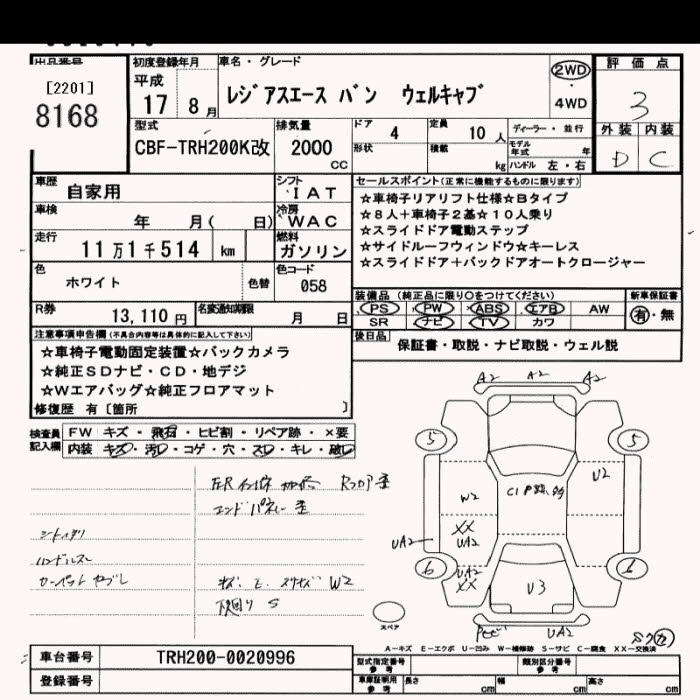 出品番号
[2201]
8168
初度登録年月
平成
17 8月
車名・グレード
レジアスエース バン ウェルキャブ
2WD
4WD
評価点
3
外装 内装
D C
型式
CBF-TRH200K改
排気量
2000
cc
ドア 4
定員 10人
ディーラー・並行
形状
積載
kg
モデル年式 年
ハンドル 左・右
車歴 自家用
シフト
IAT
車検 年 月( 日)
冷房
WAC
走行 11万1千514 km
燃料
ガソリン
色 ホワイト
色替
色コード
058
R券 13,110円
名変通知期限 月 日
セールスポイント(正常に機能するものに限ります)
☆車椅子リアリフト仕様☆Bタイプ
☆8人+車椅子2基☆10人乗り
☆スライドドア電動ステップ
☆サイドルーフウィンドウ☆キーレス
☆スライドドア+バックドアオートクロージャー
装備品 (純正品に限り○をつけてください)
新車保証書
PS PW ABS エアB AW
有・無
SR ナビ TV カワ
後日品 保証書・取説・ナビ取説・ウェル説
注意事項申告欄(不具合内容等は具体的に記入して下さい)
☆車椅子電動固定装置☆バックカメラ
☆純正SDナビ・CD・地デジ
☆Wエアバッグ☆純正フロアマット
修復歴 有〔箇所 〕
検査員記入欄
FW キズ・飛石・ヒビ割・リペア跡・×要
内装 キズ・汚レ・コゲ・穴・スレ・キレ・破レ
エンドパネル 歪
ハンドルスレ
カーペット ヤブレ
W2
下廻り S
A2 A2 A2
5 5
W2
U2
XX
UA2
UA2
UA2
XX
6 6
U3
UA2
スペア
A-キズ E-エクボ U-凹み W-補修跡 S-サビ C-腐食 XX-交換済
車台番号 TRH200-0020996
登録番号
型式指定番号
参考
類別区分番号
参考
車庫証明用
参考
長さ cm 幅 cm 高さ cm